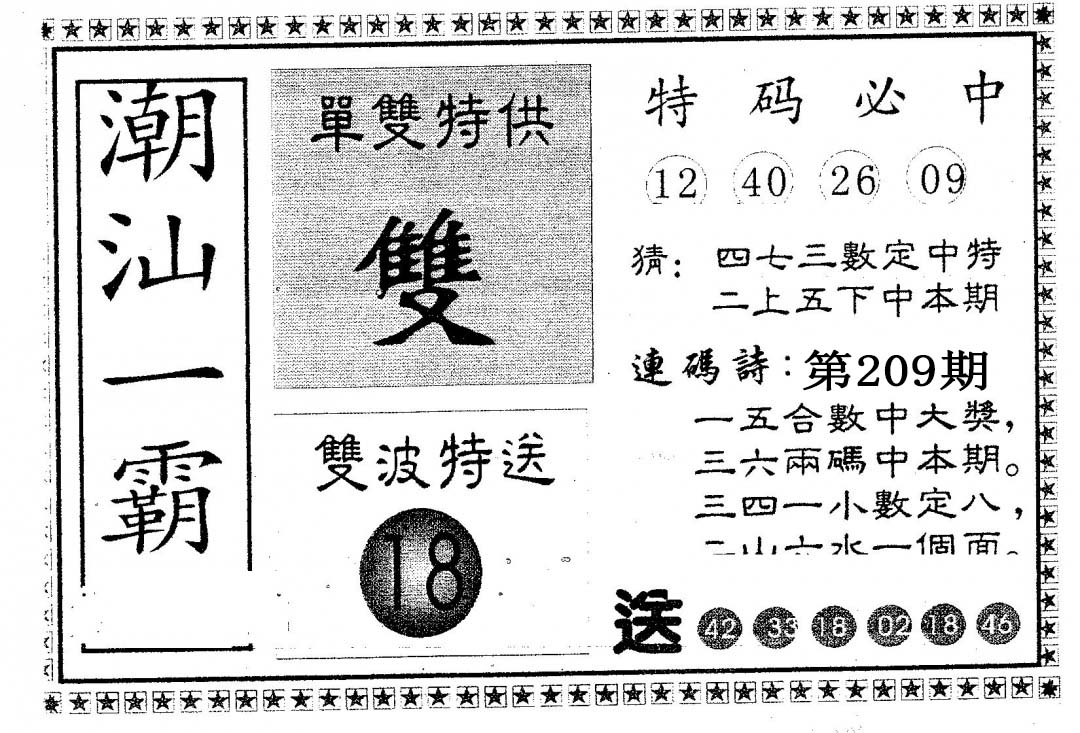 潮汕一霸
單雙特供
雙
雙波特送
18
特码必中
12 40 26 09
猜：四七三數定中特
二上五下中本期
連碼詩：第209期
一五合數中大獎，
三六兩碼中本期。
三四一小數定八，
二山六水一個面。
送 42 33 18 02 18 46